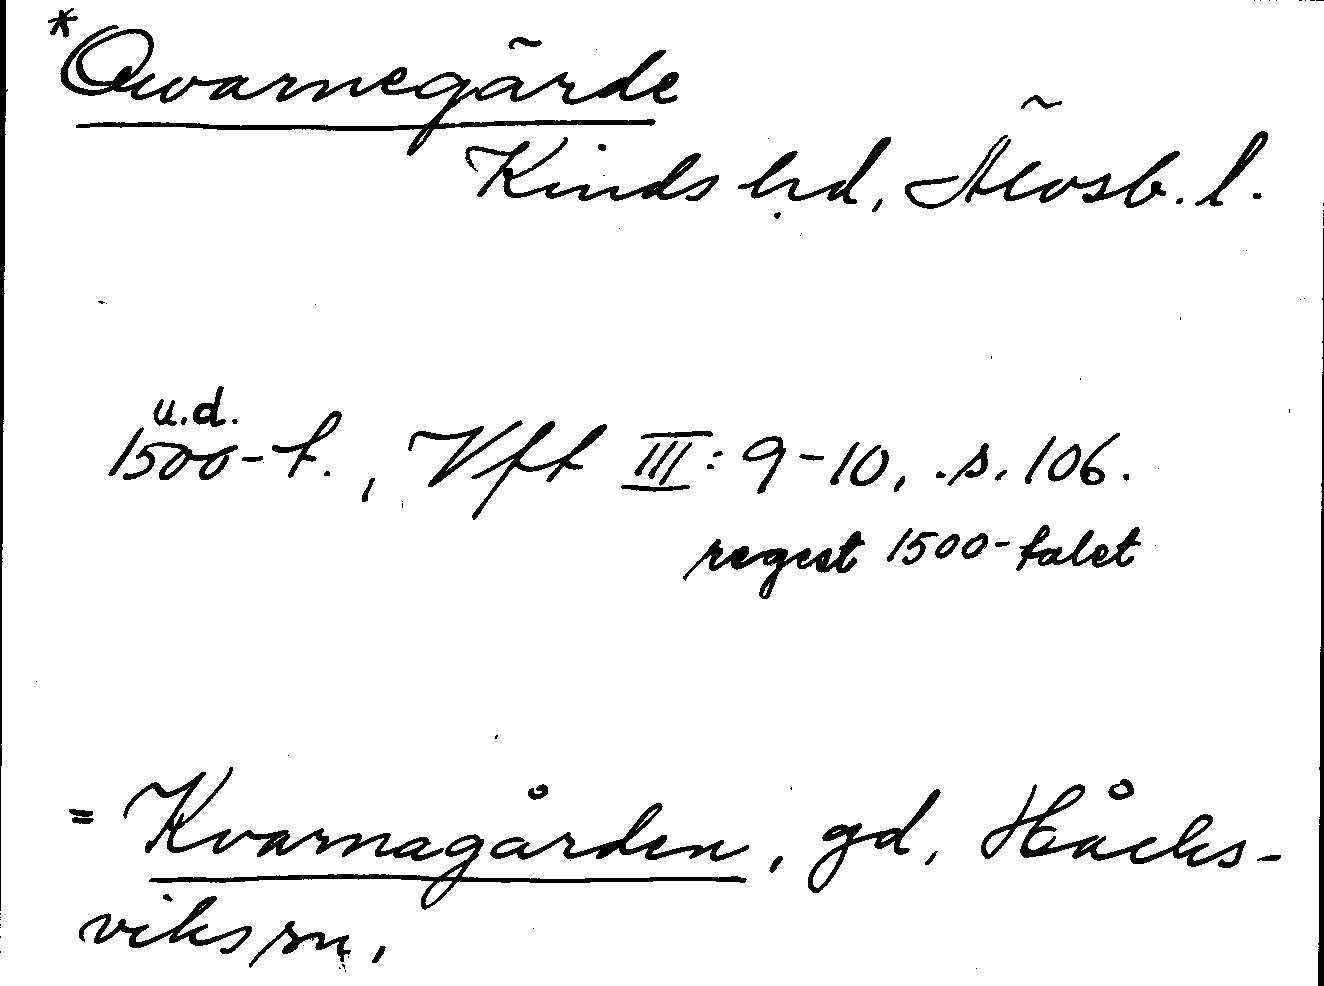 *Qvarnegärde
Kinds hd, Älvsb. l.
u.d.
1500-t., Vft III: 9-10, s. 106.
regest 1500-talet
= Kvarnagården, gd, Håcks-
viks sn.